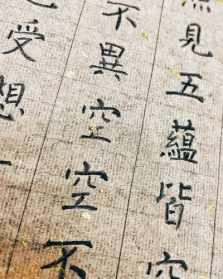 見五蘊皆空
不異空空不
受想